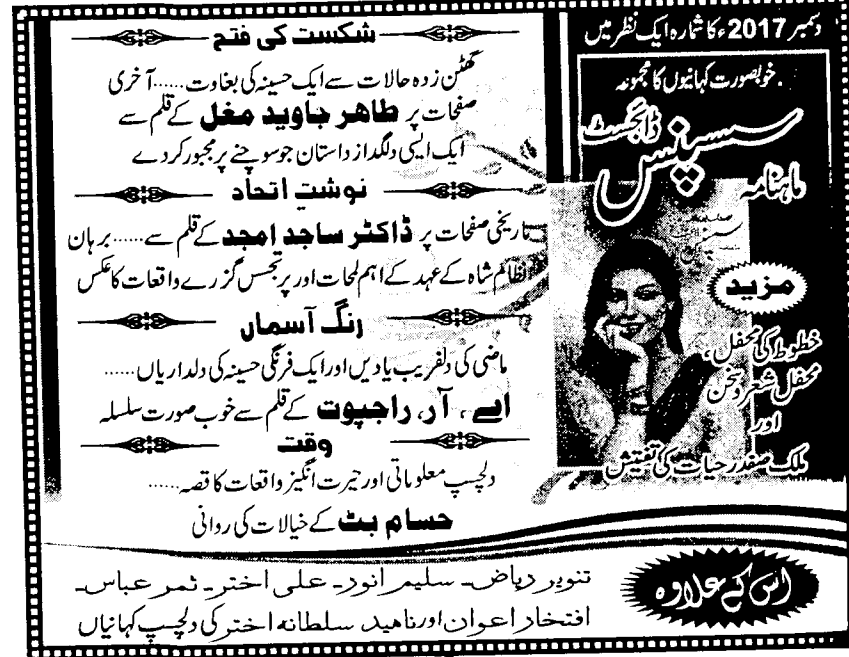 دسمبر 2017ء کا شمارہ ایک نظر میں
خوبصورت کہانیوں کا مجموعہ
ماہنامہ سسپنس ڈائجسٹ
مزید
خطوط کی محفل،
محفل شعر و سخن
اور
ملک صفدر حیات کی تفتیش
شکست کی فتح
گھٹن زدہ حالات سے ایک حسینہ کی بغاوت......آخری
صفحات پر طاہر جاوید مغل کے قلم سے
ایک ایسی دلگداز داستان جو سوچنے پر مجبور کر دے
نوشتِ اتحاد
تاریخی صفحات پر ڈاکٹر ساجد امجد کے قلم سے......برہان
نظام شاہ کے عہد کے اہم لمحات اور پر تجسس گزرے واقعات کا عکس
رنگ آسماں
ماضی کی دلفریب یادیں اور ایک فرنگی حسینہ کی دلداریاں......
اے، آر، راجپوت کے قلم سے خوب صورت سلسلہ
وقت
دلچسپ معلوماتی اور حیرت انگیز واقعات کا قصہ......
حسام بٹ کے خیالات کی روانی
اس کے علاوہ
تنویر ریاض۔ سلیم انور۔ علی اختر۔ ثمر عباس۔
افتخار اعوان اور ناہید سلطانہ اختر کی دلچسپ کہانیاں